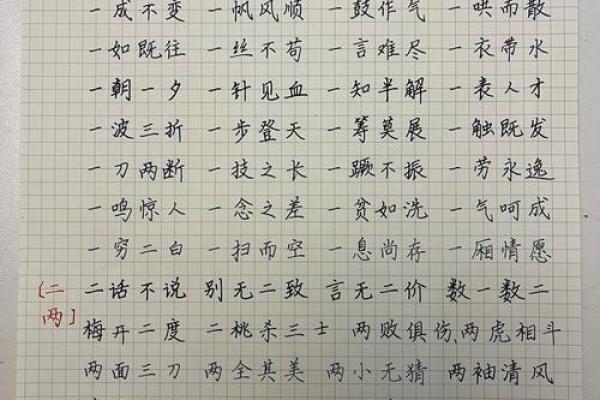 一成不变 一帆风顺 一鼓作气 一哄而散
一如既往 一丝不苟 一言难尽 一衣带水
一朝一夕 一针见血 一知半解 一表人才
一波三折 一步登天 一筹莫展 一触既发
一刀两断 一技之长 一蹶不振 一劳永逸
一鸣惊人 一念之差 一贫如洗 一气呵成
一穷二白 一扫而空 一息尚存 一厢情愿
[二 二话不说 别无二致 言无二价 数一数二
两] 梅开二度 二桃杀三士 两败俱伤、两虎相斗
两面三刀 两全其美 两小无猜 两袖清风